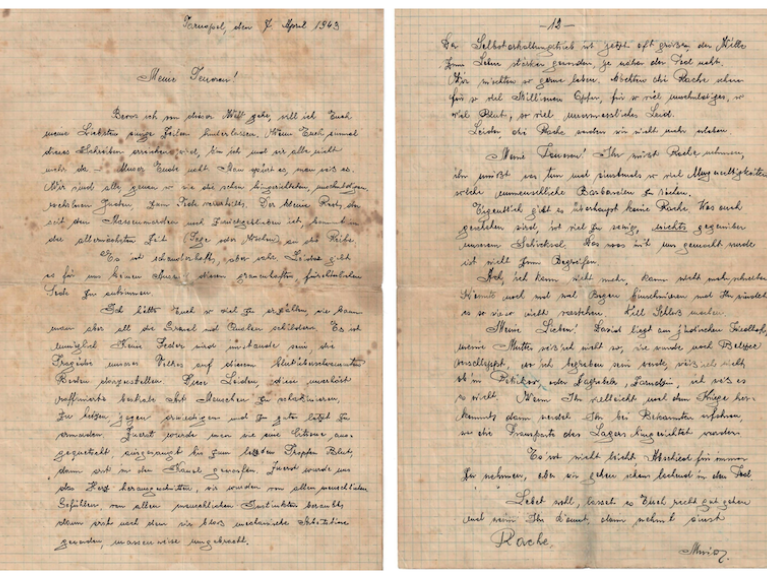 Tarnopol, den 7. April 1943
Meine Teuren!
Bevor ich von dieser Welt gehe, will ich Euch
meine Liebsten einige Zeilen hinterlassen. Wenn Euch einmal
dieses Schreiben erreichen wird, bin ich und wir alle nicht
mehr da – Unser Ende naht. Man spürt es, man weiß es.
Wir sind alle, genau so wie die schon hingerichteten, unschuldigen,
wehrlosen Juden zum Tode verurteilt. Der kleine Rest, der
seit den Massenmorden noch zurückgeblieben ist, kommt in
der allernächsten Zeit (Tage oder Wochen) an die Reihe.
Es ist schauderhaft, aber wahr. Leider gibt
es für uns keinen diesem grauenhaften fürchterlichen
Tode zu entrinnen.
Ich hätte Euch so viel zu erzählen, wie kann
man aber all die Graual und Qualen schildern. Es ist
unmöglich. Keine Feder wird imstande sein die
Tragödie unseres Volkes auf diesem blutüberschwemmten
Boden darzustellen. Leiden, diese unerhört
raffinierte Art Menschen zu
zu hetzen, jagen, erniedrigen und zu guter letzt zu
ermorden. Zuerst wurde man wie eine Citrone aus-
gequetscht, ausgesaugt bis zum letzten Tropfen Blut,
dann erst in den geworfen. Zuerst wurde uns
das Herz herausgeschnitten, wir wurden von allen menschlichen
Gefühlen, von allen menschlichen Instinkten beraubt,
dann erst nach dem wir bloß mechanische
geworden, massenweise umgebracht.
-12-
Der Selbsterhaltungstrieb ist jetzt oft größer, der Wille
zum Leben stärker geworden, je näher der Tod naht.
Wir möchten so gerne leben. Möchten die Rache sehen
für so viel Millionen Opfer, für so viel unschuldiges, so
viel Blut, so viel unermessliches Leid.
Leider die Rache werden wir nicht mehr erleben.
Meine Teuren! Ihr müsst Rache nehmen,
Ihr müsst es tun und einstmals so viel Ungerechtigkeiten
solche unmenschliche Barbareien zu rächen.
Eigentlich gibt es überhaupt keine Rache. Was auch
geschehen wird, ist viel zu wenig, nichts gegenüber
unserem Schicksal. Das was mit uns gemacht wurde
ist nicht zum Begreifen.
Ach, ich kann nicht mehr, kann nicht mehr schreiben
Könnte noch und mal Bogen vollschmieren und Ihr würdet
es so wie so nicht verstehen. Will Schluß machen.
Meine Lieben! David liegt am jüdischen Friedhof,
meine Mutter weiß ich nicht wo, sie wurde nach Belzec
verschleppt, wo ich begraben sein werde, weiß ich nicht
ob in Petrikow, oder Zagrobela, Zarudzie, ich weiß es
es nicht. Wenn Ihr vielleicht nach dem Kriege her-
kommt, dann werdet Ihr bei Bekannten erfahren,
wo die Transporte des Lagers hingerichtet wurden.
Es ist nicht leicht Abschied für immer
zu nehmen, aber wir gehen schon lächelnd in den Tod
Lebet wohl, lasset es Euch recht gut gehen
und wenn Ihr könnt, dann nehmt einst
Rache.